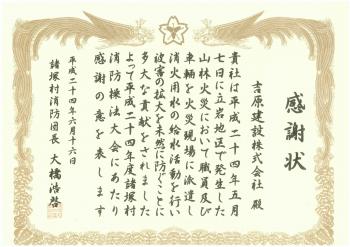 感謝状
吉原建設株式会社 殿
貴社は平成二十四年五月
七日に立岩地区で発生した
山林火災において職員及び
車輌を火災現場に派遣し
消火用水の給水活動を行い
被害の拡大を未然に防ぐことに
多大な貢献をされました
よって平成二十四年度諸塚村
消防操法大会にあたり
感謝の意を表します
平成二十四年六月十六日
諸塚村消防団長 大橋浩啓